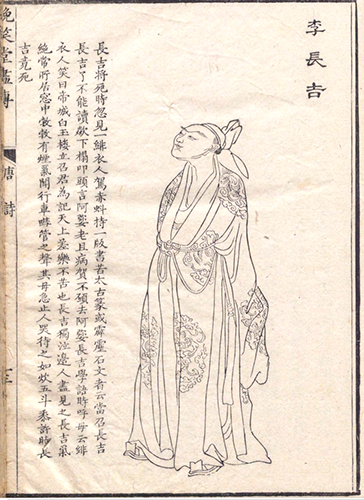 李長吉
長吉将死時忽見一緋衣人駕赤虬持一版書若太古篆或霹靂石文者云當召長吉
長吉了不能讀欻下榻叩頭言阿㜷老且病賀不願去阿㜷長吉學語時呼母云緋
衣人笑曰帝城白玉樓立召君為記天上差樂不苦也長吉獨泣邊人盡見之長吉氣
絶常所居窓中㪍㪍有煙氣聞行車嘒管之聲其母急止人哭待之如炊五斗黍許時長
吉竟死
晚笑堂畫傳
唐詩